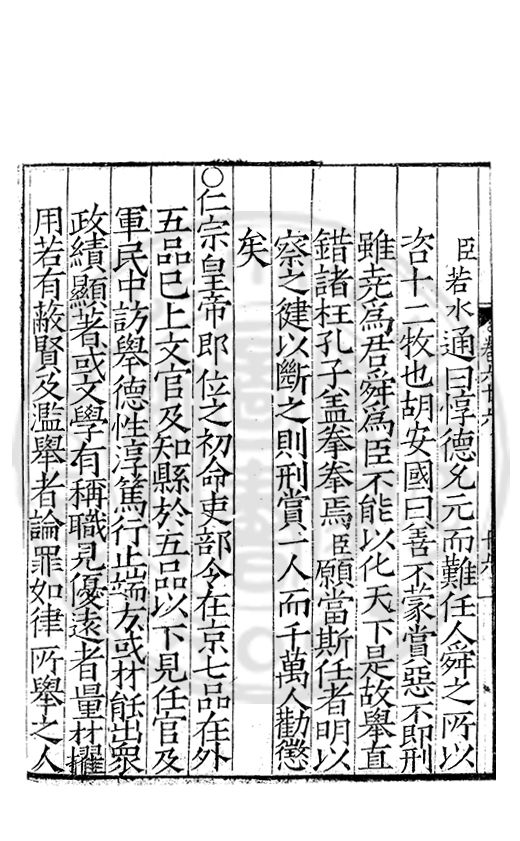 臣若水通曰惇德允元而難任人舜之所以
咨十二牧也胡安國曰善不蒙賞惡不即刑
雖堯爲君舜爲臣不能以化天下是故舉直
錯諸枉孔子盖拳拳焉臣願當斯任者明以
察之健以斷之則刑賞一人而千萬人勸懲
矣
○仁宗皇帝即位之初命吏部令在京七品在外
五品已上文官及知縣於五品以下見任官及
軍民中訪舉德性淳篤行止端方或材能出衆
政績顯著或文學有稱職見優遠者量材擢
用若有蔽賢及濫舉者論罪如律所舉之人